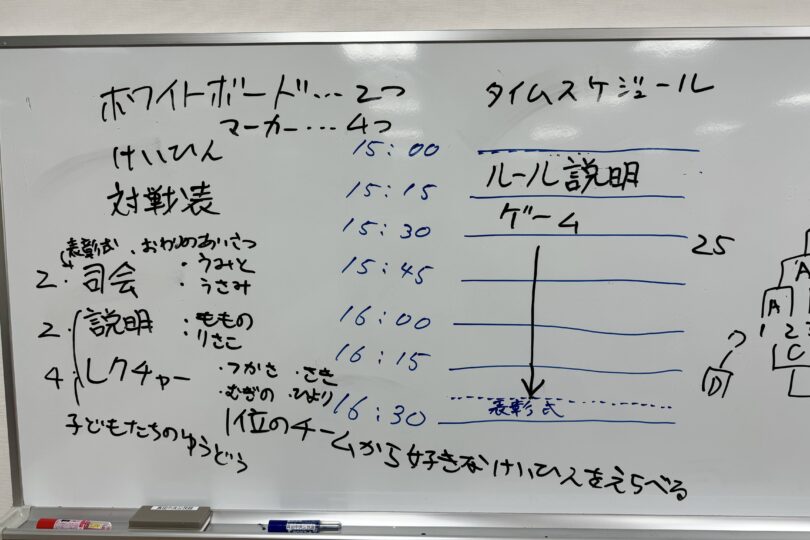 ホワイトボード…2つ
マーカー…4つ
けいひん
対戦表
表彰式、おわりのあいさつ
2・司会 ・うみと
・うさみ
2・説明 ・ももの
・りさこ
4・レクチャー ・つかさ ・さき
・むぎの ・ひより
子どもたちのゆうどう
1位のチームから好きなけいひんをえらべる
タイムスケジュール
15:00
ルール説明
15:15
ゲーム
15:30
25
15:45
16:00
16:15
表彰式
16:30
A
A
1 2 3
C
D